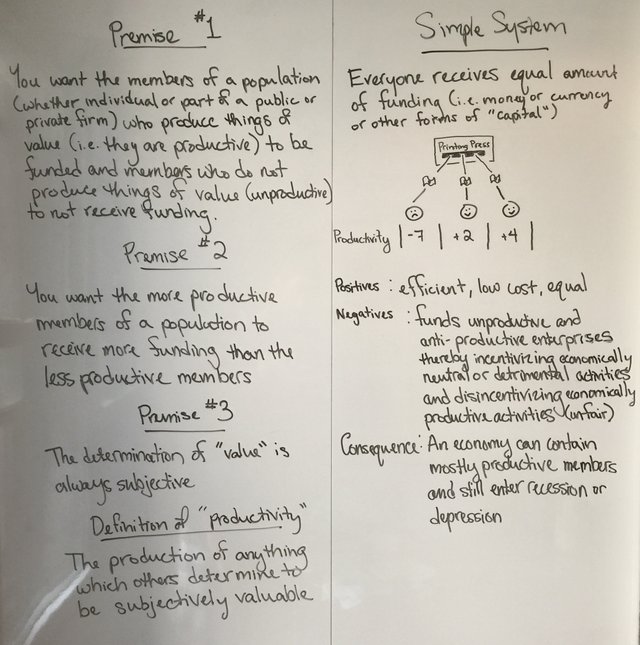 Premise #1
You want the members of a population
(whether individual or part of a public or
private firm) who produce things of
value (i.e. they are productive) to be
funded and members who do not
produce things of value (unproductive)
to not receive funding.
Premise #2
You want the more productive
members of a population to
receive more funding than the
less productive members
Premise #3
The determination of "value" is
always subjective
Definition of "productivity"
The production of anything
which others determine to
be subjectively valuable
Simple System
Everyone receives equal amount
of funding (i.e. money or currency
or other forms of "capital")
Printing Press
Productivity | -7 | +2 | +4 |
Positives : efficient, low cost, equal
Negatives : funds unproductive and
anti-productive enterprises
thereby incentivizing economically
neutral or detrimental activities
and disincentivizing economically
productive activities (unfair)
Consequence: An economy can contain
mostly productive members
and still enter recession or
depression